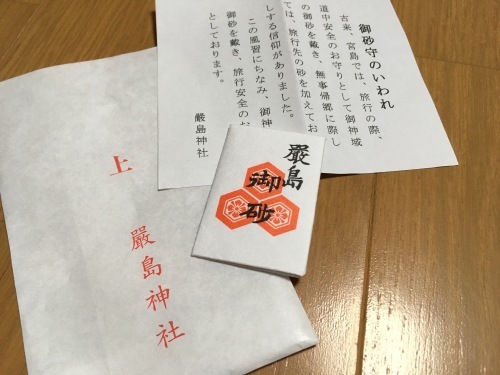 御砂守のいわれ
古来、宮島では、旅行の際、
道中安全のお守りとして御神域
の御砂を戴き、無事帰郷に際し
ては、旅行先の砂を加えてお
しする信仰がありました。
この風習にちなみ、御神
御砂を戴き、旅行安全のお
としております。
嚴島神社
嚴島
御砂
上
嚴島神社